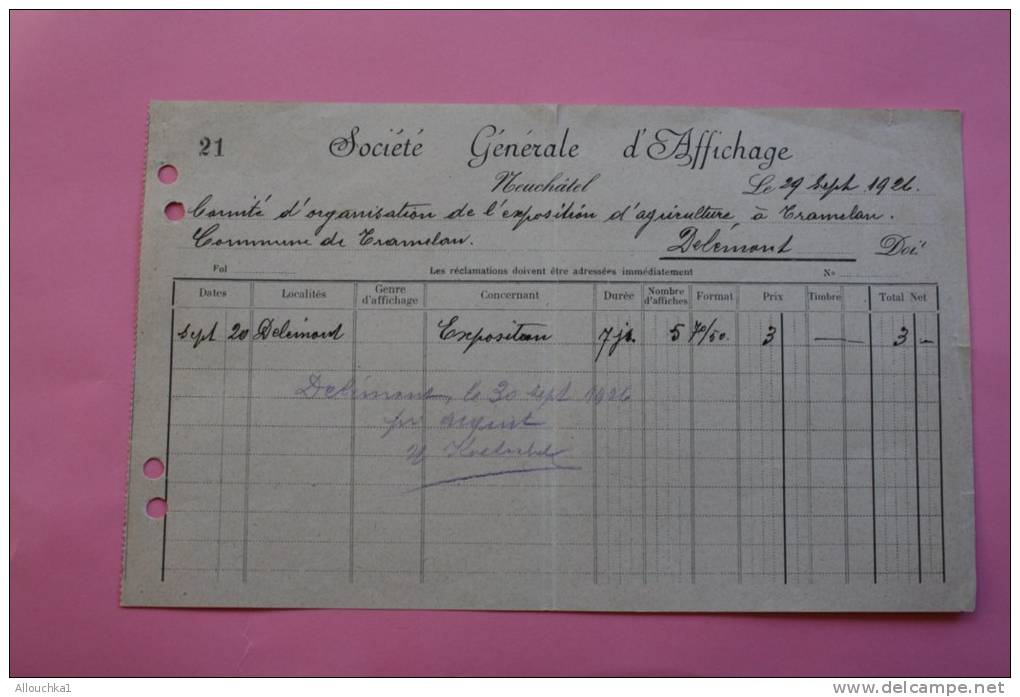 21
Société Générale d'Affichage
Neuchâtel Le 29 Sept. 1926.
Comité d'organisation de l'exposition d'agriculture, à Tramelan.
Commune de Tramelan. Delémont Doit
Fol Les réclamations doivent être adressées immédiatement No
Dates Localités Genre d'affichage Concernant Durée Nombre d'affiches Format Prix Timbre Total Net
Sept 20 Delémont Exposition 7 jrs. 5 70/50. 3 — 3 —
Delémont, le 30 sept 1926
pr acquit
Allouchka1
www.delcampe.net